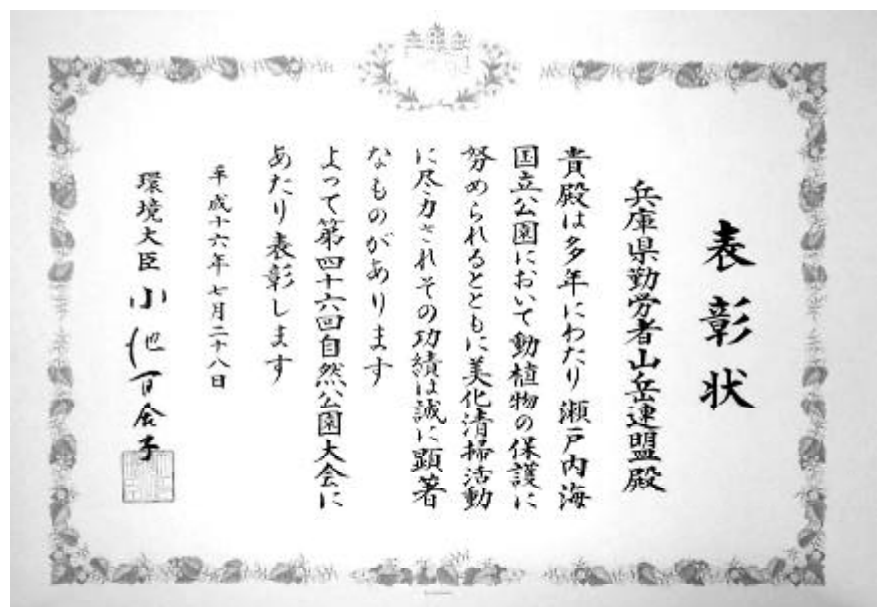 表彰状
兵庫県勤労者山岳連盟殿
貴殿は多年にわたり瀬戸内海
国立公園において動植物の保護に
努められるとともに美化清掃活動
に尽力されその功績は誠に顕著
なものがあります
よって第四十六回自然公園大会に
あたり表彰します
平成十六年七月二十八日
環境大臣 小池百合子